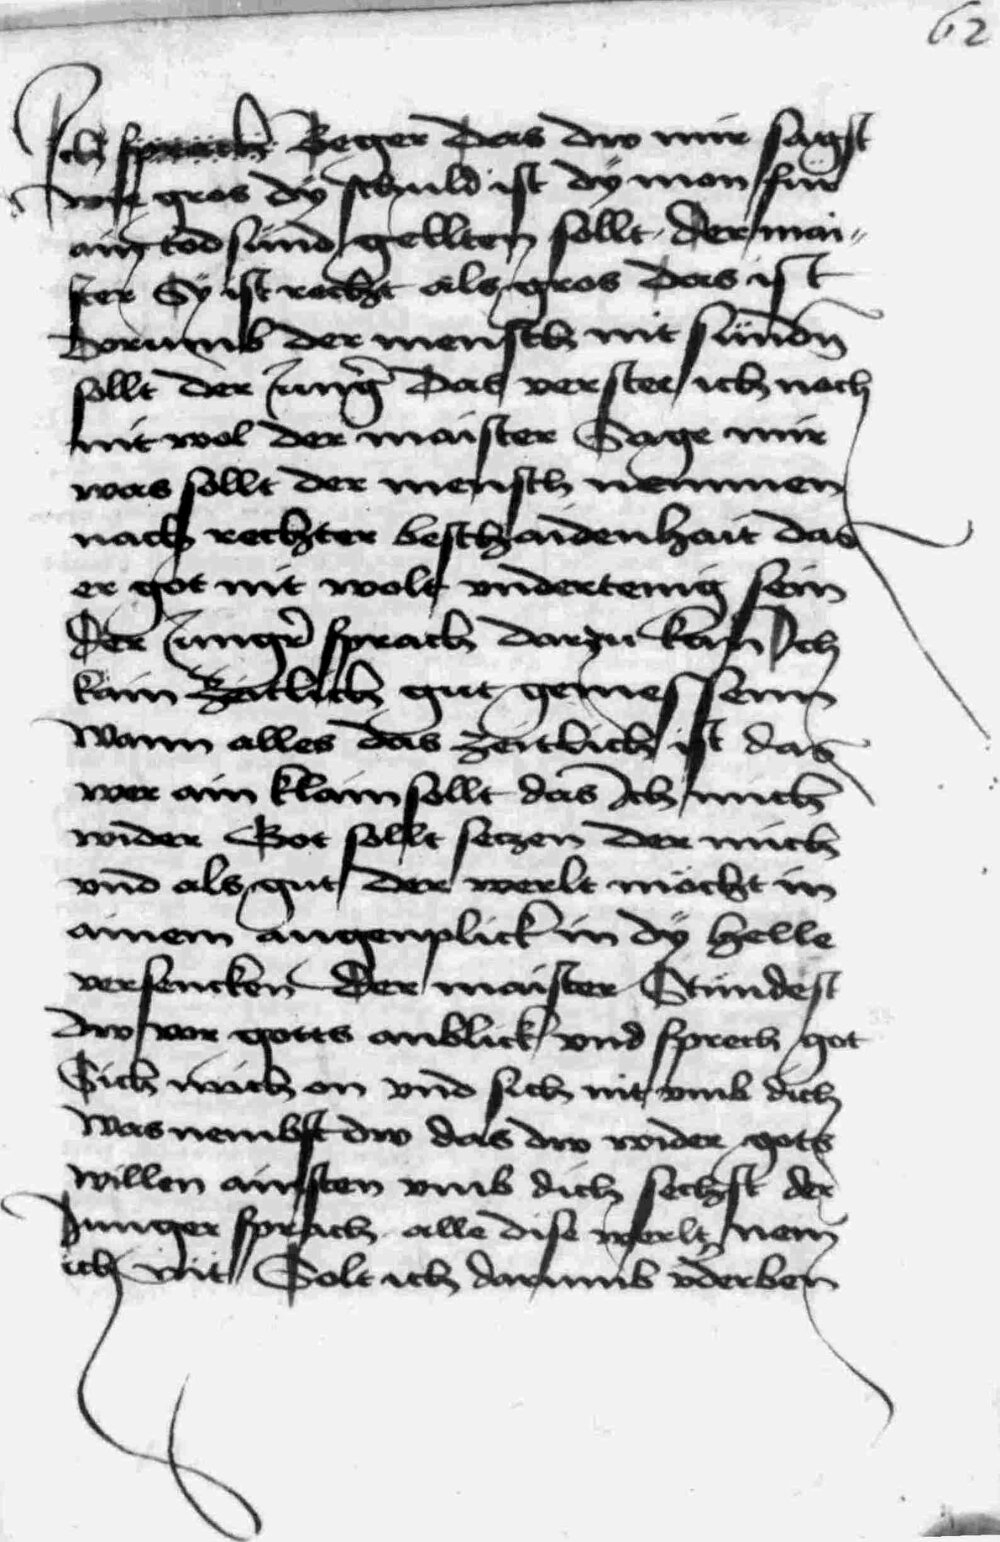 62
Ich sprach Beger das dw mir sagst
wie gros dÿ schuld ist dÿ man für
ain tod sünd gellten sollt. Der mai-
ster Sÿ ist recht als gros das ist
Dorumb der mensch nit sünden
sollt der Jung͛ Das verstee ich noch
nit wol der maister Sage mir
was sollt der mensch nemmen
nach rechter beschaidenhait das
er got nit wolt vndertenig sein
Der Jungr͛ sprach darzu kan Ich
kain Zeitlich gut gemessenn
Wann alles das zeitlich ist das
wer ain klain sollt das Ich mich
wider Got sollt seczen der mich
vnd als gut der werlt möcht in
ainem augenplick in dÿ helle
versencken Der maister Stündest
dw vor gotts anblick vnd sprech got
Sich mich an vnd sich nit vmb dich
Was nembst dw das dw wider gots
willen ainsten vmb dich sechst der
Junger sprach alle dise werlt nem
ich nit Solt ich darumb v͛derben